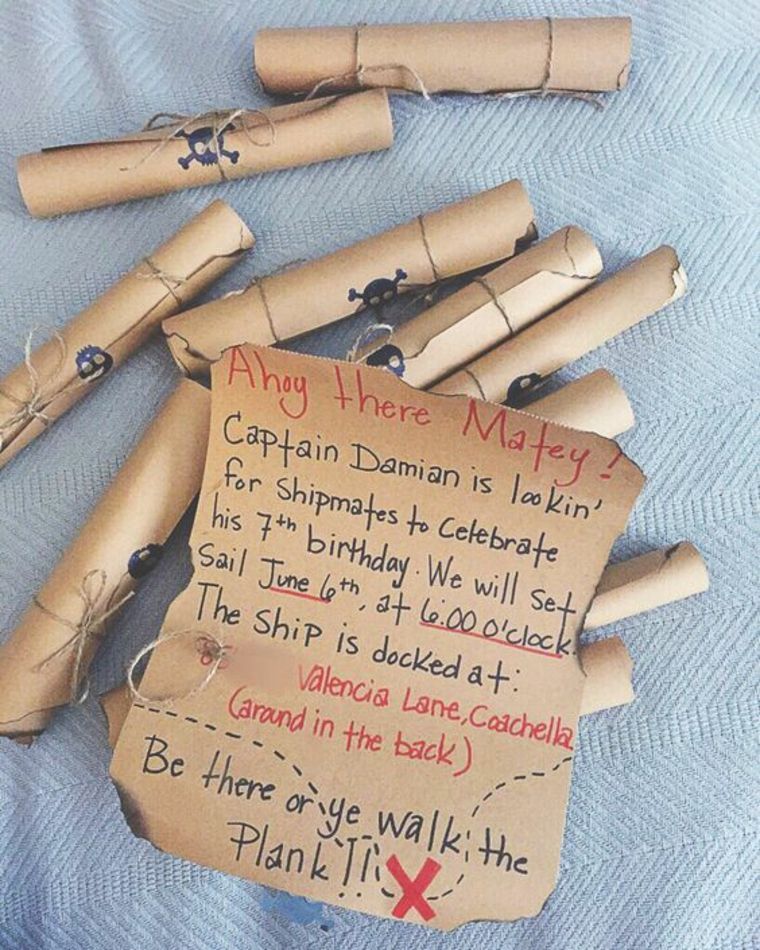 Ahoy there Matey!
Captain Damian is lookin'
for Shipmates to Celebrate
his 7th birthday. We will set
Sail June 6th, at 6:00 O'clock.
The Ship is docked at:
Valencia Lane, Coachella
(around in the back)
Be there or ye walk the
Plank!!
X